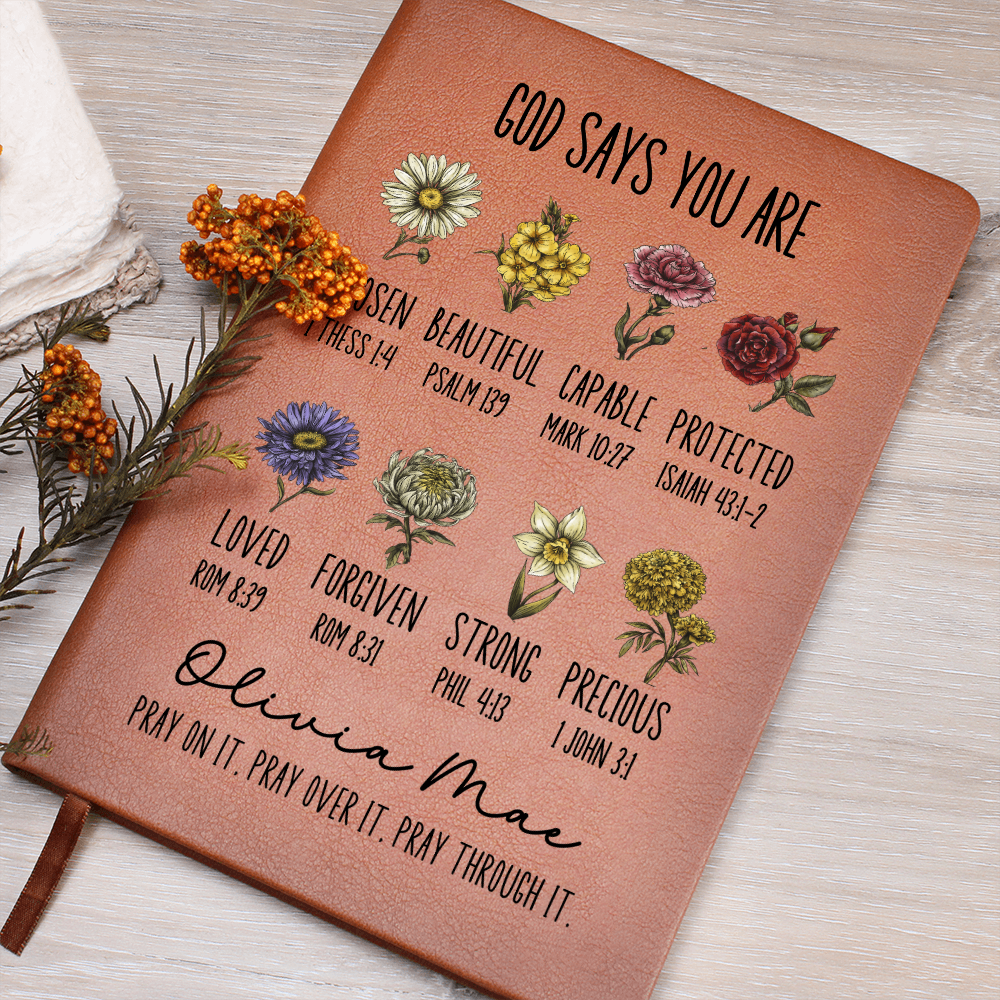 GOD SAYS YOU ARE
OSEN BEAUTIFUL CAPABLE PROTECTED
THESS 1:4 PSALM 139 MARK 10:27 ISAIAH 43:1-2
LOVED FORGIVEN STRONG PRECIOUS
ROM 8:39 ROM 8:31 PHIL 4:13 1 JOHN 3:1
Olivia Mae
PRAY ON IT. PRAY OVER IT. PRAY THROUGH IT.